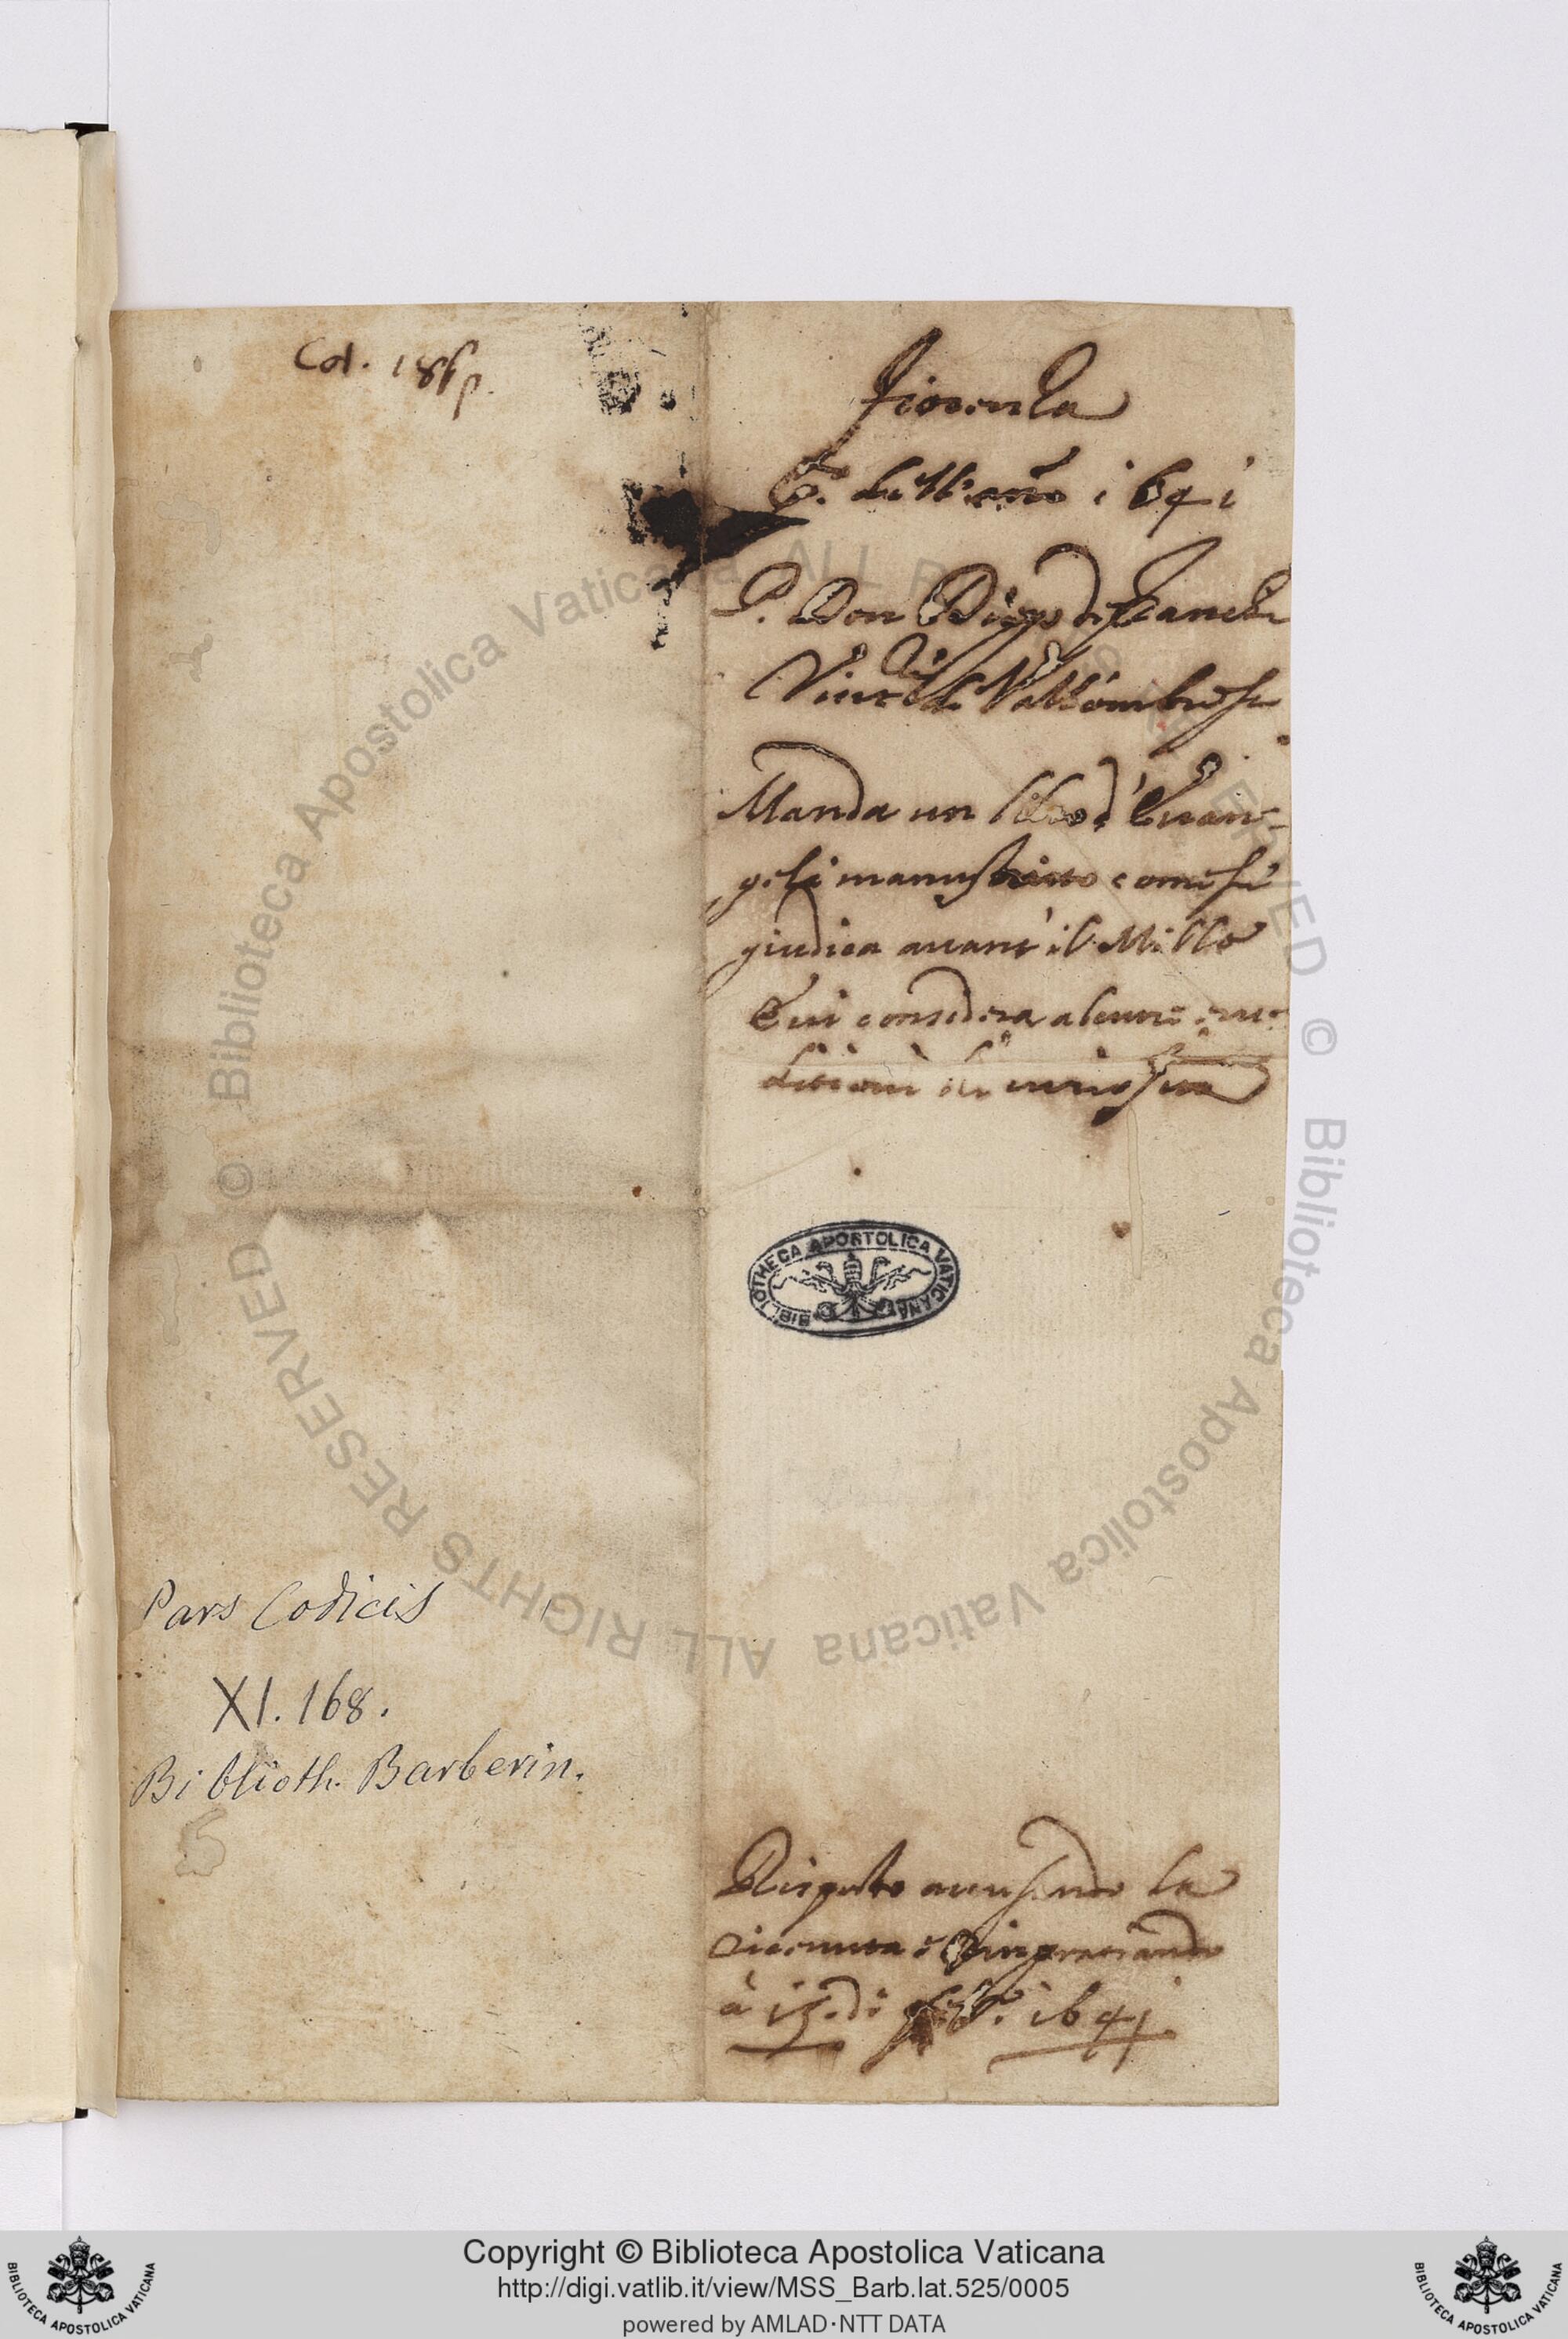 Cod. 18
Fiorenza
6. 1641
P. Don Diego di Franchi
di Vallombrosa
Manda un libro d'Euan-
geli manuscritto come si
giudica auant' il Mille
E ui considera alcune eru-
ditioni di curiosita
BIBLIOTHECA APOSTOLICA VATICANA
Pars Codicis
XI. 168.
Biblioth. Barberin.
Risposto accusando la
riceuuta e Ringratiando
à 15. di 1641
© Biblioteca Apostolica Vaticana ALL RIGHTS RESERVED © Biblioteca Apostolica Vaticana ALL RIGHTS RESERVED
Copyright © Biblioteca Apostolica Vaticana
http://digi.vatlib.it/view/MSS_Barb.lat.525/0005
powered by AMLAD·NTT DATA
BIBLIOTECA APOSTOLICA VATICANA
BIBLIOTECA APOSTOLICA VATICANA